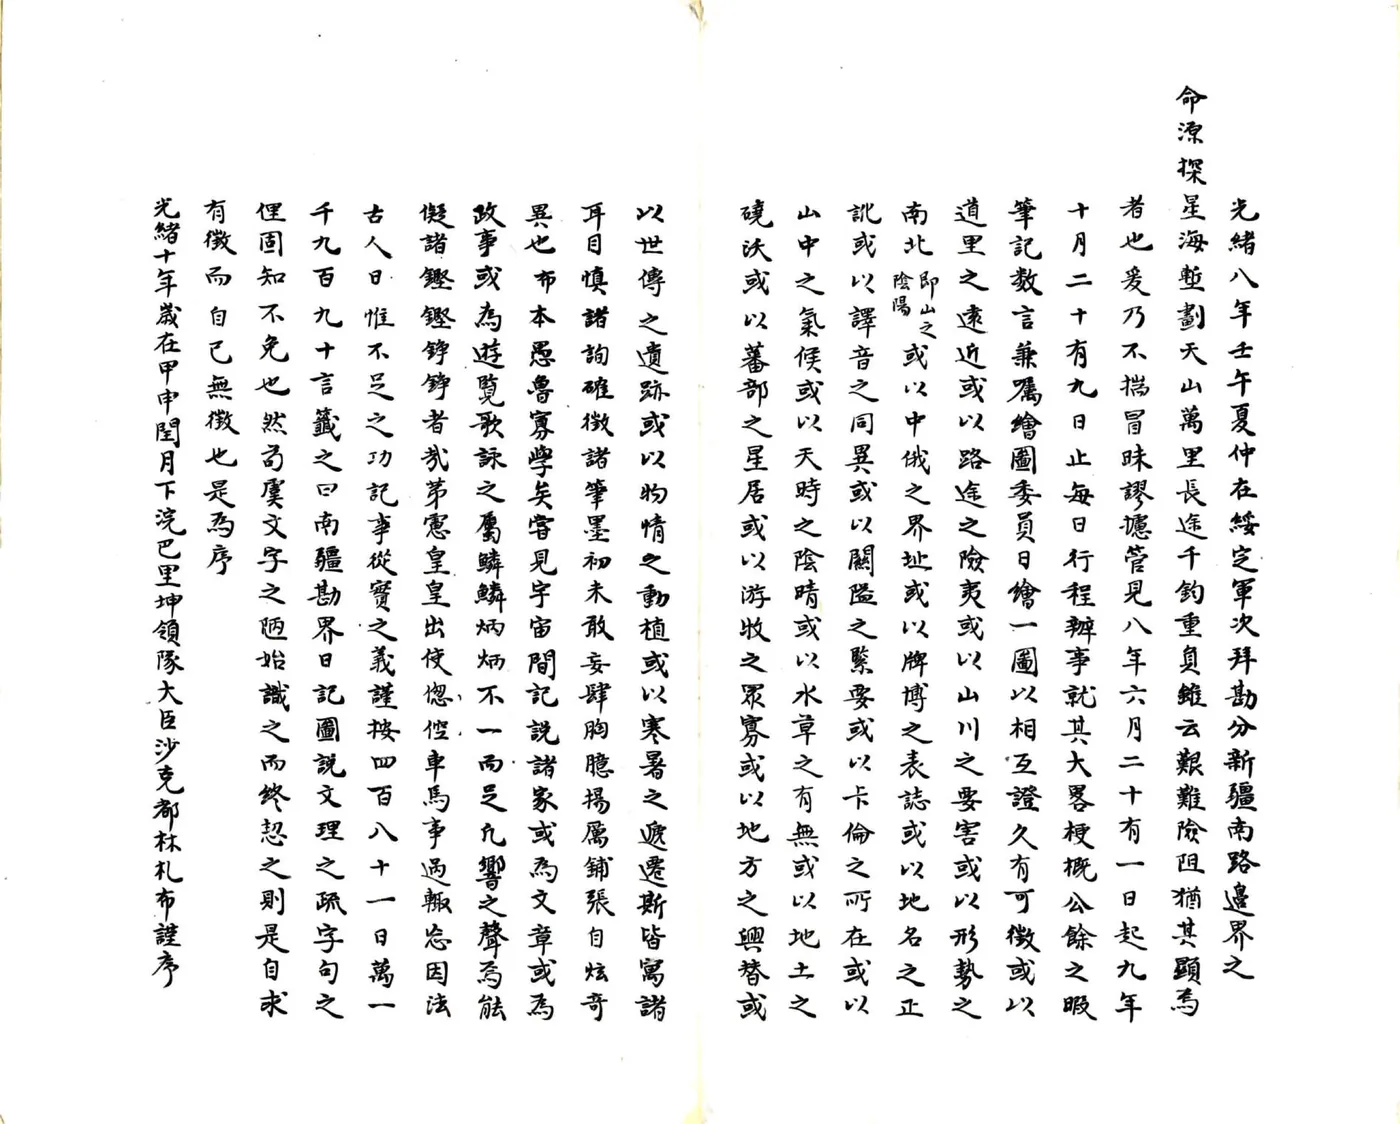 光緒八年壬午夏仲在綏定軍次拜勘分新疆南路邊界之
命源探星海塹劃天山萬里長途千鈞重負雖云艱難險阻猶其顯焉
者也爰乃不揣冒昧謬攄管見八年六月二十有一日起九年
十月二十有九日止每日行程辦事就其大畧梗概公餘之暇
筆記数言兼屬繪圖委員日繪一圖以相互證久有可徵或以
道里之遠近或以路途之險夷或以山川之要害或以形勢之
南北即山之陰陽或以中俄之界址或以牌博之表誌或以地名之正
訛或以譯音之同異或以關隘之緊要或以卡倫之所在或以
山中之氣候或以天時之陰晴或以水草之有無或以地土之
磽沃或以蕃部之星居或以游牧之眾寡或以地方之興替或
以世傳之遺跡或以物情之動植或以寒暑之遞遷斯皆寓諸
耳目慎諸詢確徵諸筆墨初未敢妄肆胸臆揚厲鋪張自炫奇
異也布本愚魯寡學矣嘗見宇宙間記説諸家或為文章或為
政事或為遊覽歌詠之屬鱗鱗炳炳不一而足凡響之聲焉能
儗諸鏗鏗錚錚者哉第憲皇皇出使偬倥車馬事過輙忘因法
古人日惟不足之功記事從實之義謹按四百八十一日萬一
千九百九十言籤之曰南疆勘界日記圖説文理之疏字句之
俚固知不免也然苟虞文字之陋始識之而終恝之則是自求
有徵而自已無徵也是為序
光緒十年歲在甲申閏月下浣巴里坤領隊大臣沙克都林札布謹序